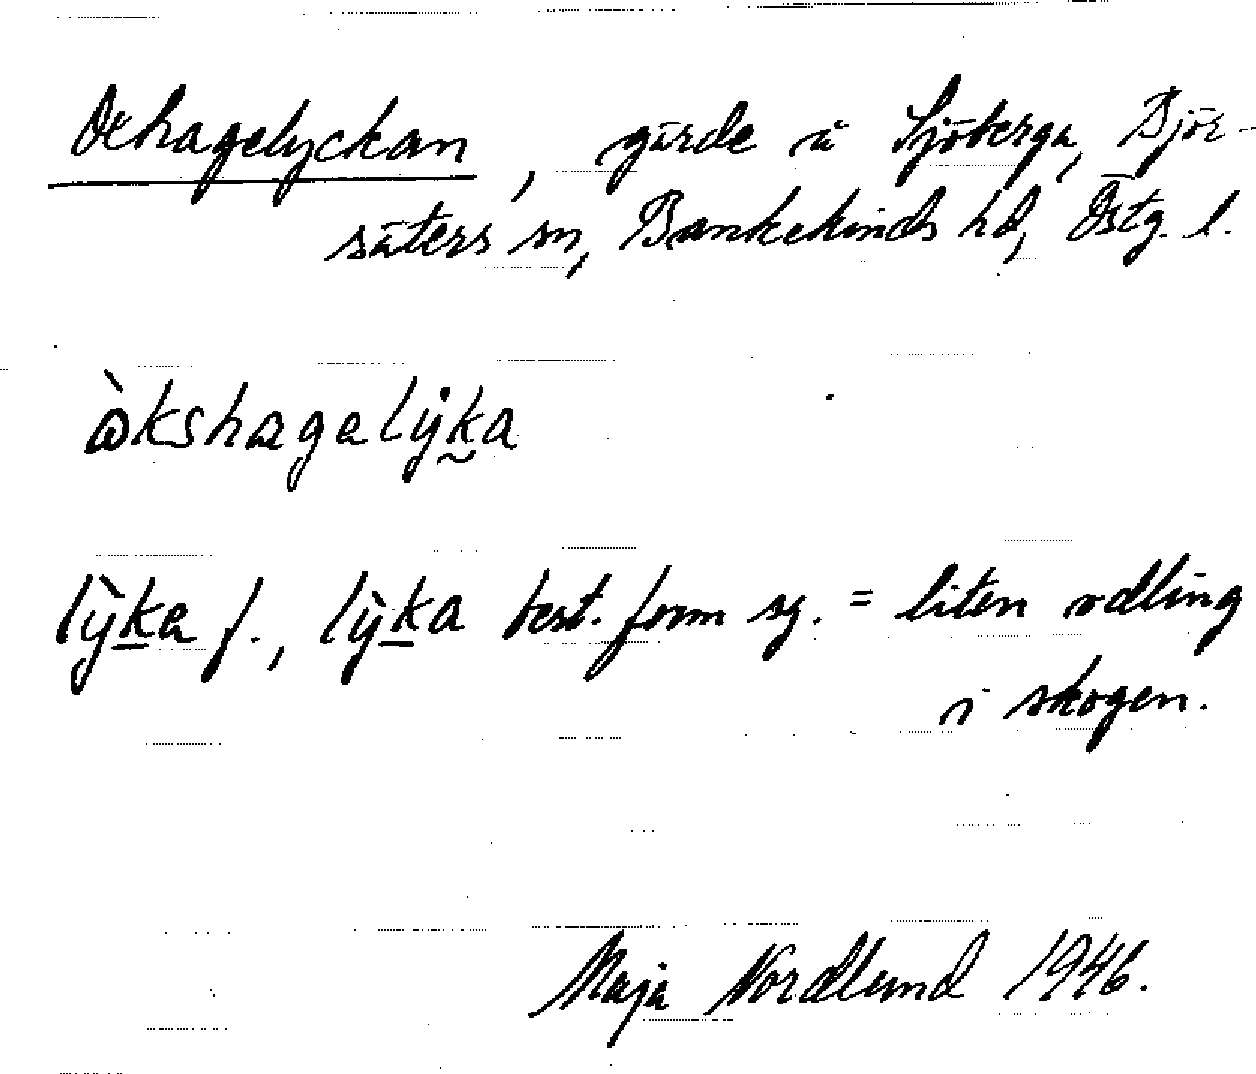 Oxhagelyckan, gärde å Sjöberga, Björ-
säters sn, Bankekinds hd, Östg. l.
lỳka f., lỳka best. form sg. = liten odling
i skogen.
Maja Nordlund 1946.